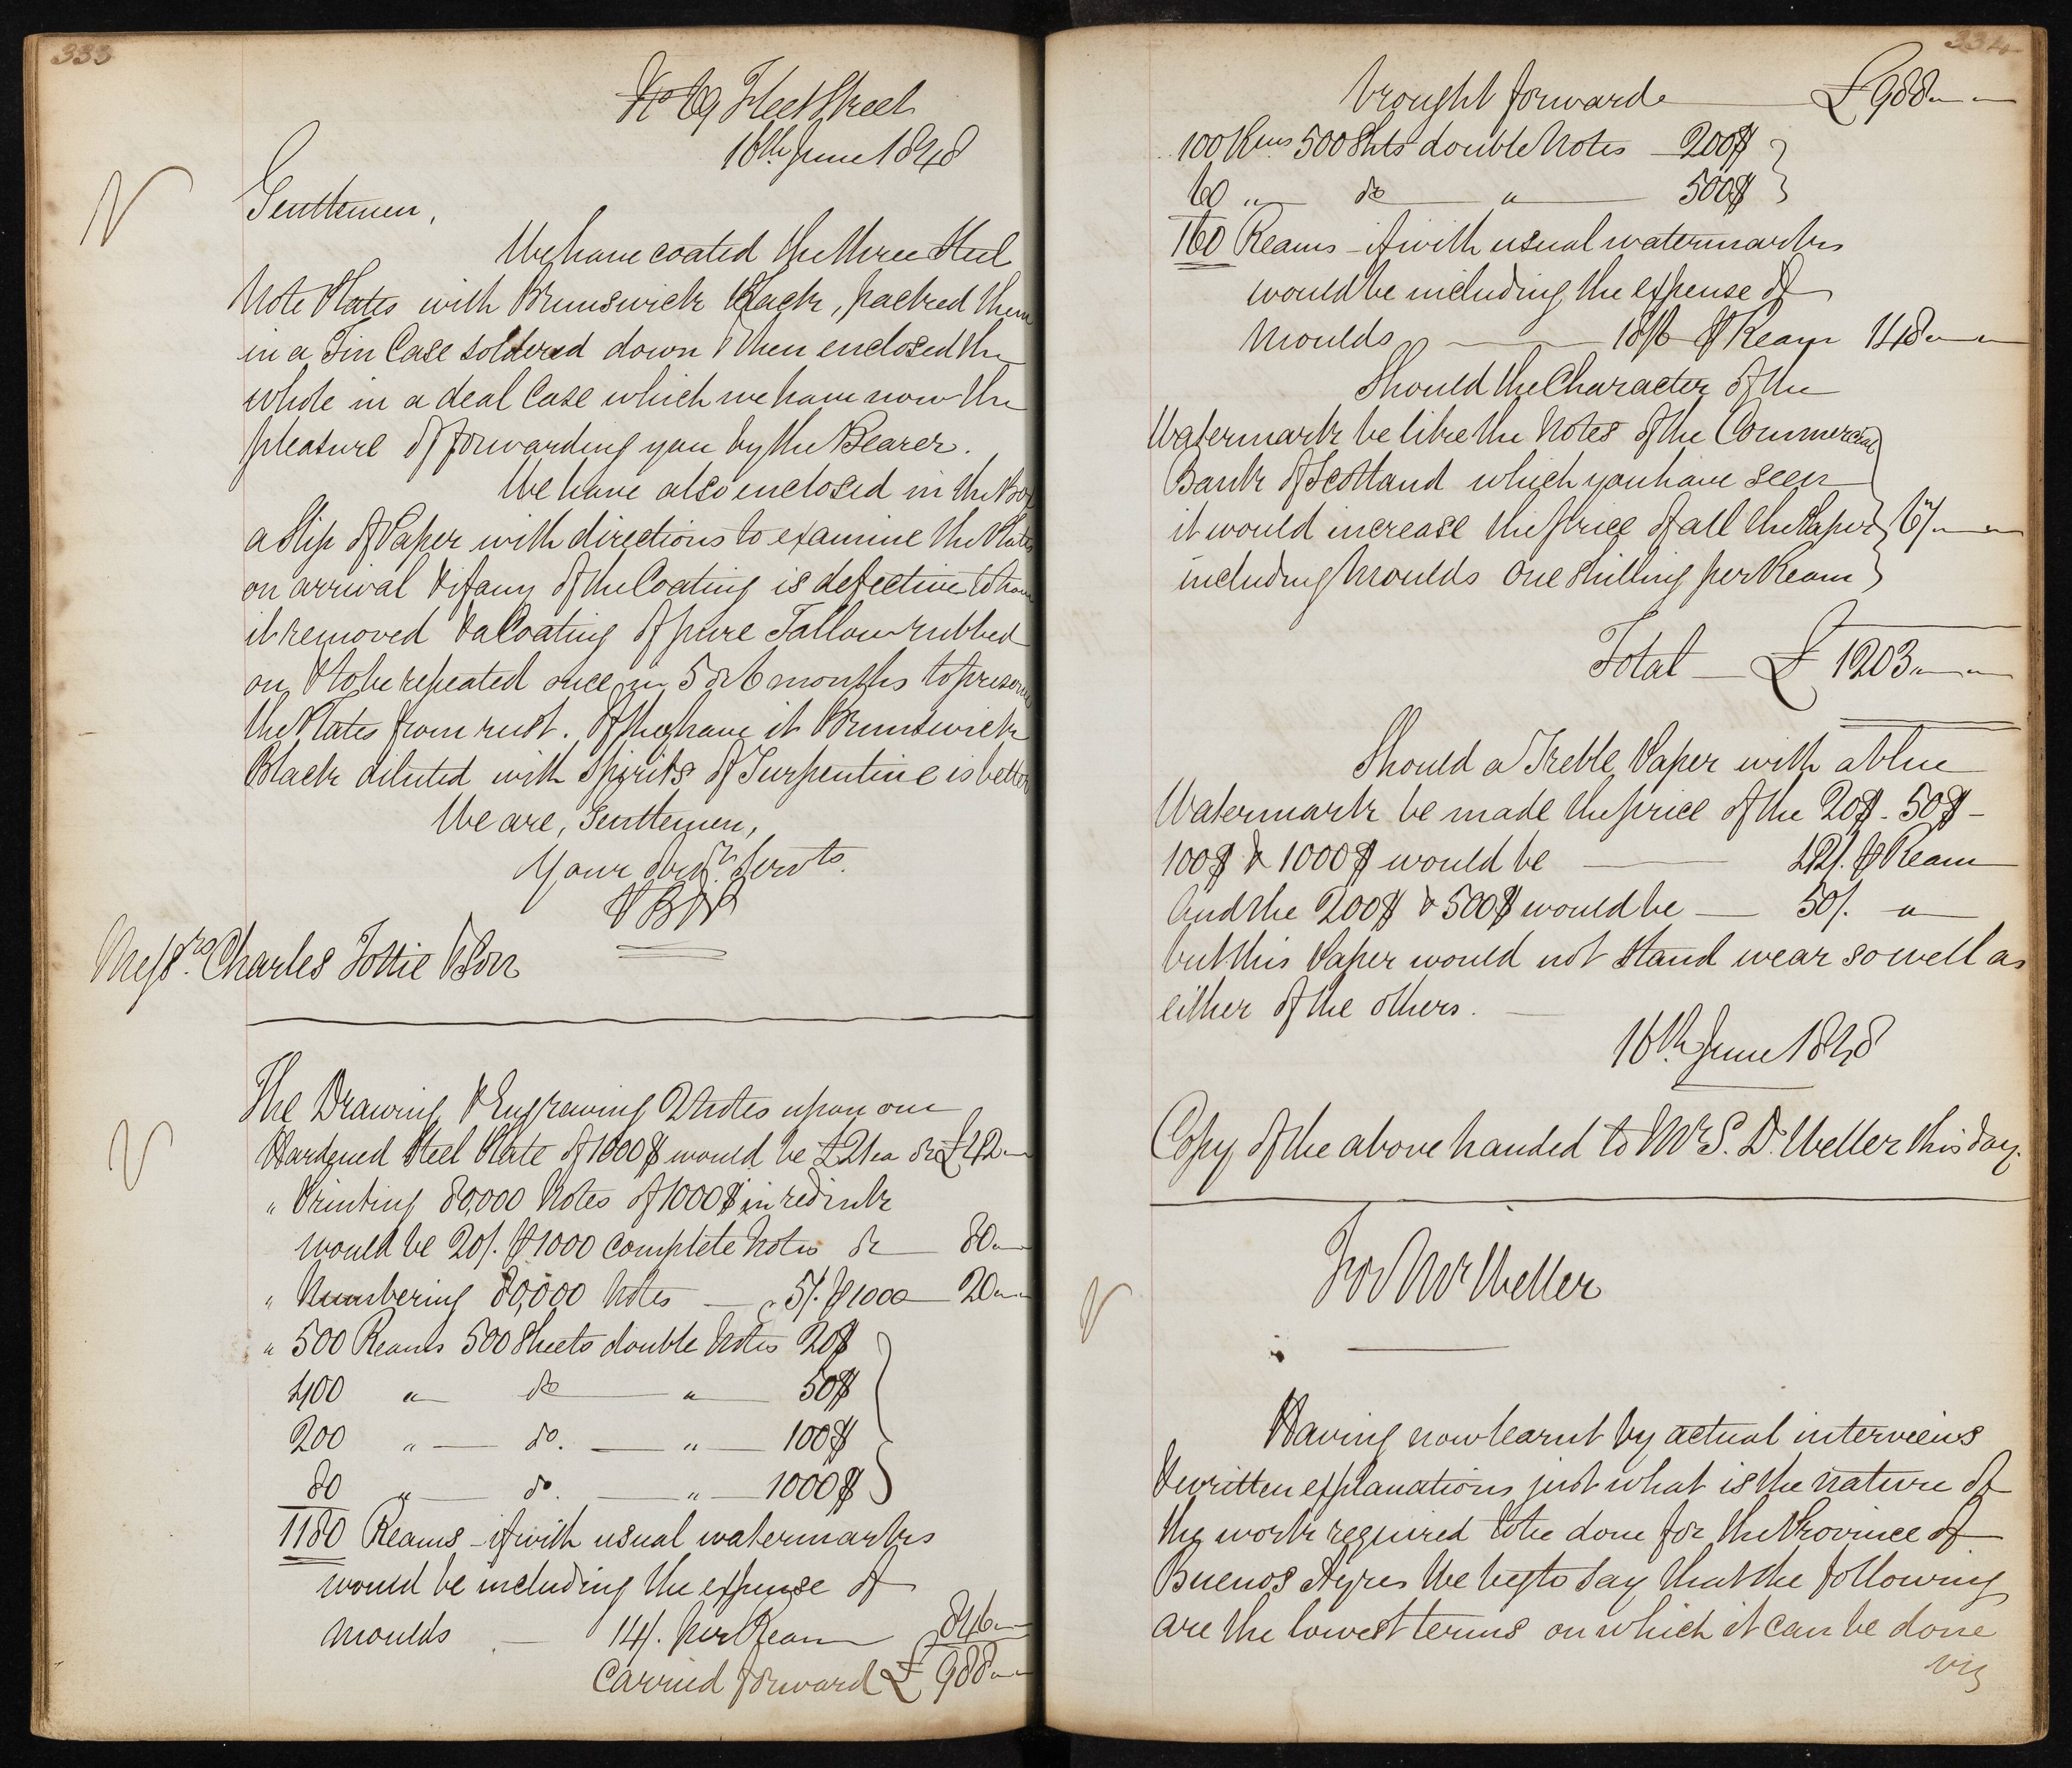 333
No 69 Fleet Street
16th June 1848
Gentlemen,
We have coated the three Steel
Note Plates with Brunswick Black, packed them
in a Tin Case soldered down & then enclosed the
whole in a deal Case which we have now the
pleasure of forwarding you by the Bearer.
We have also enclosed in the Box
a Slip of Paper with directions to examine the Plates
on arrival & if any of the Coating is defective to have
it removed & a Coating of pure Tallow rubbed
on & to be repeated once in 5 or 6 months to preserve
the Plates from rust. If they have it Brunswick
Black diluted with Spirits of Turpentine is better
We are, Gentlemen,
Your obedt. Servts.
PB&P
Messrs. Charles Tottie & Son
The Drawing & Engraving 2 Notes upon one
Hardened Steel Plate of 1000$ would be £21 ea or £42 " "
" Printing 80,000 Notes of 1000$ in red ink
would be 20/. ⅌ 1000 complete Notes or 80 " "
" Numbering 80,000 Notes — 5/. ⅌ 1000 — 20 " "
" 500 Reams 500 Sheets double Notes 20$
400 " do " 50$
200 " do. " 100$
80 " do. " 1000$
1180 Reams – if with usual watermarks
would be including the expense of
Moulds — 14/. per Ream 846 " "
Carried forward £ 988 " "
334
brought forward £ 988 " "
100 Rms 500 Shts double Notes 200$
60 " do " 500$
160 Reams – if with usual watermarks
would be including the expense of
Moulds — 18/6 ⅌ Ream 148 " "
Should the Character of the
Watermark be like the Notes of the Commercial
Bank of Scotland which you have seen
it would increase the price of all the Paper 67 " "
including Moulds One Shilling per Ream
Total — £ 1203 " "
Should a Treble Paper with a blue
Watermark be made the price of the 20$ - 50$ -
100$ & 1000$ would be — 42/. ⅌ Ream
And the 200$ & 500$ would be — 50/. "
but this Paper would not stand wear so well as
either of the others.
16th June 1848
Copy of the above handed to Mr S. D. Weller this day.
For Mr Weller
Having now learnt by actual interviews
& written explanations just what is the nature of
the work required to be done for the Province of
Buenos Ayres We beg to say that the following
are the lowest terms on which it can be done
viz